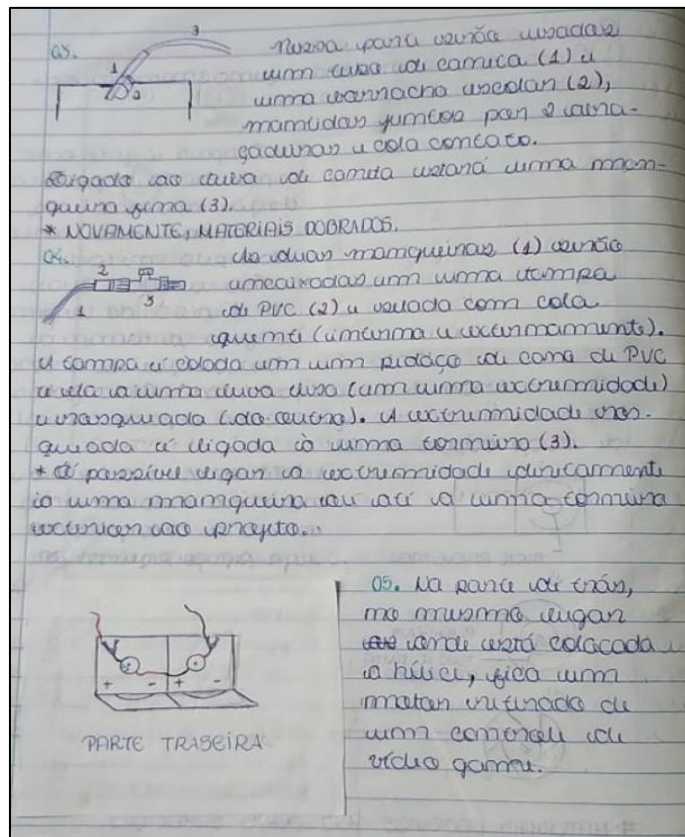 03. Nessa parte serão usadas
um tubo de caneta (1) e
uma borracha escolar (2),
mantidas juntos por 2 abra-
çadeiras e cola contato.
Ligado ao tubo de caneta estará uma man-
gueira fina (3).
* NOVAMENTE, MATERIAIS DOBRADOS.
04. As duas mangueiras (1) serão
encaixadas em uma tampa
de PVC (2) e vedada com cola
quente (interna e externamente).
A tampa é colada em um pedaço de cano de PVC
e ela a uma luva lisa (em uma extremidade)
e rosqueada (do outro). A extremidade ros-
queada é ligada à uma torneira (3).
* É possível ligar a extremidade diretamente
à uma mangueira ou até a uma torneira
exterior ao projeto...
05. Na parte de trás,
no mesmo lugar
onde está colocada
a hélice, fica um
motor retirado de
um controle de
vídeo game.
1 2 3
1 2 3
+ - + -
PARTE TRASEIRA